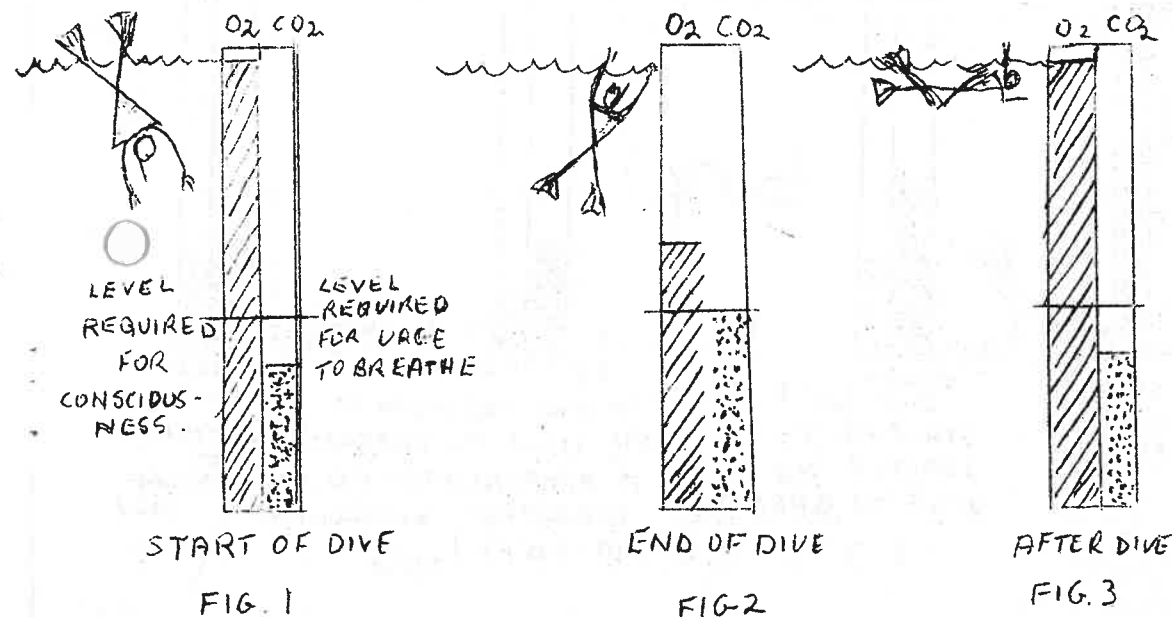 O2 CO2
LEVEL
REQUIRED
FOR
CONSCIOUS-
NESS.
LEVEL
REQUIRED
FOR URGE
TO BREATHE
START OF DIVE
FIG. 1
O2 CO2
END OF DIVE
FIG 2
O2 CO2
AFTER DIVE
FIG. 3